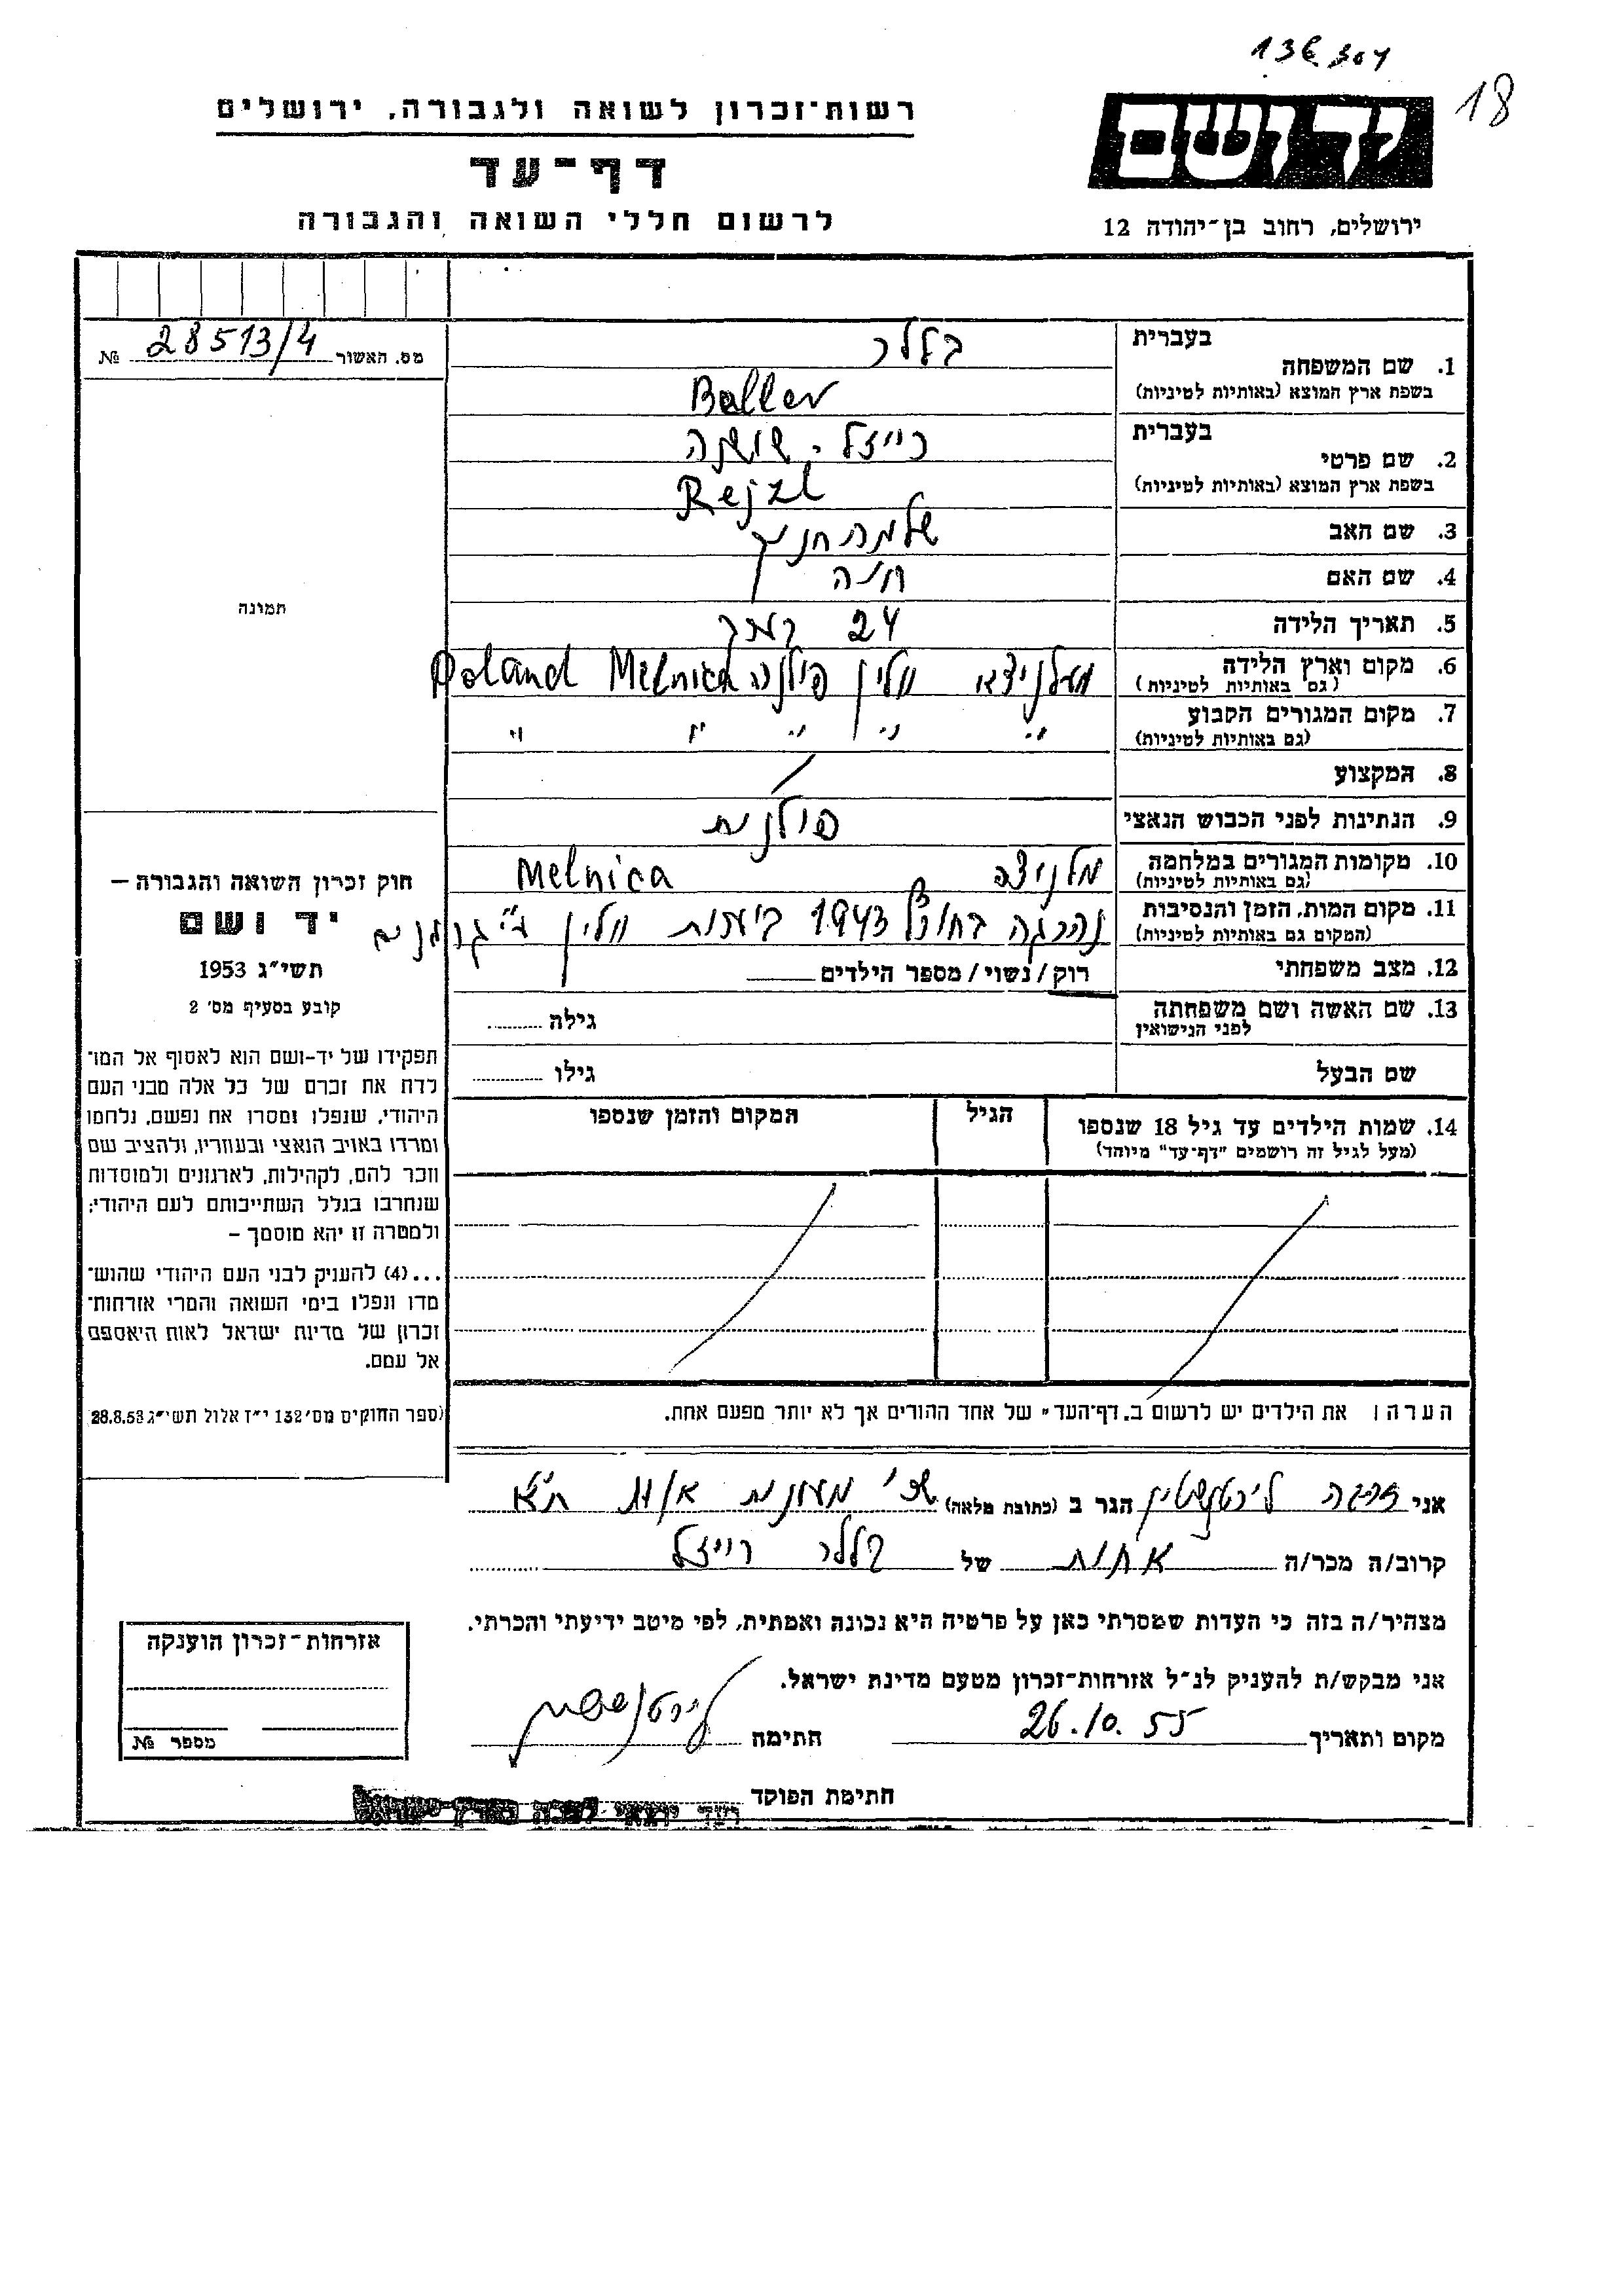 18
רשות־זכרון לשואה ולגבורה, ירושלים
דף־עד
לרשום חללי השואה והגבורה
יד ושם
ירושלים, רחוב בן־יהודה 12
מס. האשור 28513/4 №
תמונה
חוק זכרון השואה והגבורה –
יד ושם
תשי״ג 1953
קובע בסעיף מס׳ 2
תפקידו של יד-ושם הוא לאסוף אל המו־
לדת את זכרם של כל אלה מבני העם
היהודי, שנפלו ומסרו את נפשם, נלחמו
ומרדו באויב הנאצי ובעוזריו, ולהציב שם
וזכר להם, לקהילות, לארגונים ולמוסדות
שנחרבו בגלל השתייכותם לעם היהודי;
ולמטרה זו יהא מוסמך –
...(4) להעניק לבני העם היהודי שהוש־
מדו ונפלו בימי השואה והמרי אזרחות־
זכרון של מדינת ישראל לאות היאספם
אל עמם.
(ספר החוקים מס׳ 132 י״ז אלול תשי״ג 28.8.53
בעברית בללר
1. שם המשפחה
בשפת ארץ המוצא (באותיות לטיניות) Baller
בעברית רייזל - שושנה
2. שם פרטי
בשפת ארץ המוצא (באותיות לטיניות) Rejzl
3. שם האב שלמה חניך
4. שם האם חיה
5. תאריך הלידה 24 בערך
6. מקום וארץ הלידה מלניצא וולין פולניה Melnica Poland
(גם באותיות לטיניות)
7. מקום המגורים הקבוע " " " " "
(גם באותיות לטיניות)
8. המקצוע /
9. הנתינות לפני הכבוש הנאצי פולנית
10. מקומות המגורים במלחמה מלניצה Melnica
(גם באותיות לטיניות)
11. מקום המות, הזמן והנסיבות נהרגה 1943 ביערות וולין ע״י גרמנים
(המקום גם באותיות לטיניות)
12. מצב משפחתי רוק / נשוי / מספר הילדים
13. שם האשה ושם משפחתה גילה
לפני הנישואין
שם הבעל גילו
14. שמות הילדים עד גיל 18 שנספו הגיל המקום והזמן שנספו
(מעל לגיל זה רושמים "דף־עד" מיוחד)
הערה: את הילדים יש לרשום ב„דף־העד" של אחד ההורים אך לא יותר מפעם אחת.
אני ליכטנשטיין הגר ב (כתובת מלאה) שכ׳ מעונות ת״א
קרוב/ה מכר/ה אחות של בללר רייזל
מצהיר/ה בזה כי העדות שמסרתי כאן על פרטיה היא נכונה ואמתית, לפי מיטב ידיעתי והכרתי.
אני מבקש/ת להעניק לנ״ל אזרחות־זכרון מטעם מדינת ישראל.
מקום ותאריך 26.10.55 חתימה ליכטנשטיין
חתימת הפוקד
אזרחות־זכרון הוענקה
מספר №